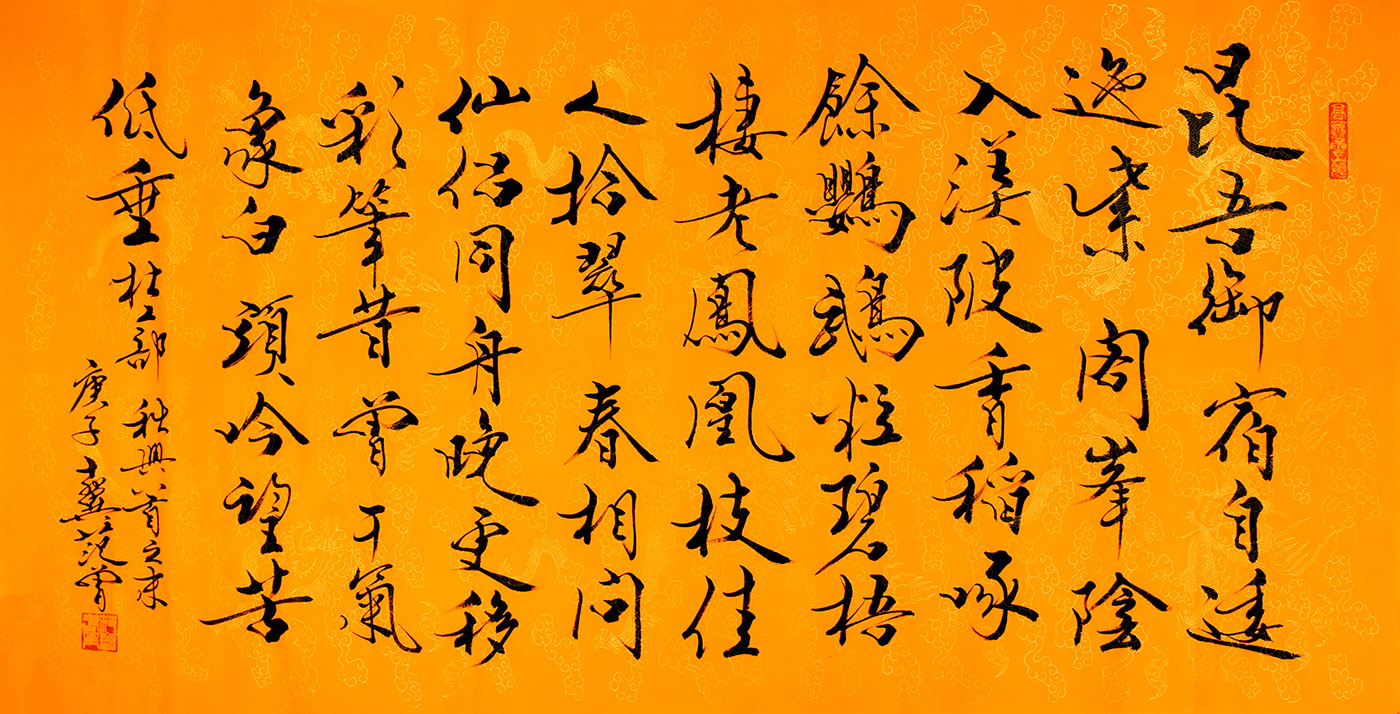 昆吾御宿自逶
迤紫閣峯陰
入渼陂香稻啄
餘鸚鵡粒碧梧
棲老鳳凰枝佳
人拾翠春相問
仙侶同舟晚更移
彩筆昔曾干氣
象白頭吟望苦
低垂杜工部秋興八首之末
庚子十翼范曾